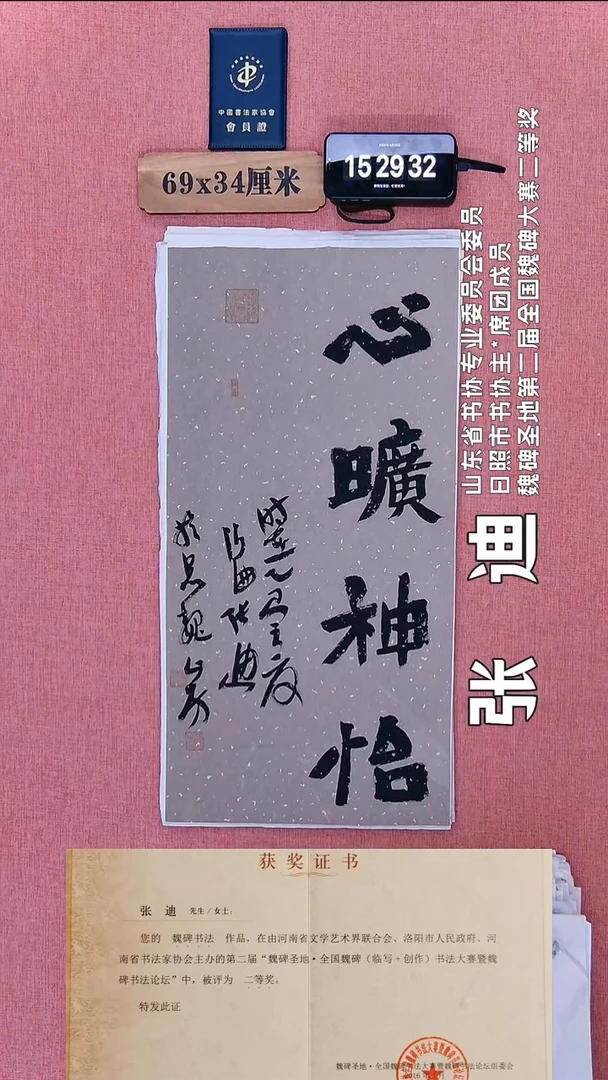 中國書法家協會
會員證
69x34厘米
15 29 32
心曠神怡
山东省书协专业委员会委员
日照市书协主*席团成员
魏碑圣地第二届全国魏碑大赛二等奖
张迪
获奖证书
张 迪 先生/女士:
您的 魏碑书法 作品，在由河南省文学艺术界联合会、洛阳市人民政府、河
南省书法家协会主办的第二届“魏碑圣地·全国魏碑（临写+创作）书法大赛暨魏
碑书法论坛”中，被评为 二等奖。
特发此证
魏碑圣地·全国魏碑书法大赛暨魏碑书法论坛组委会